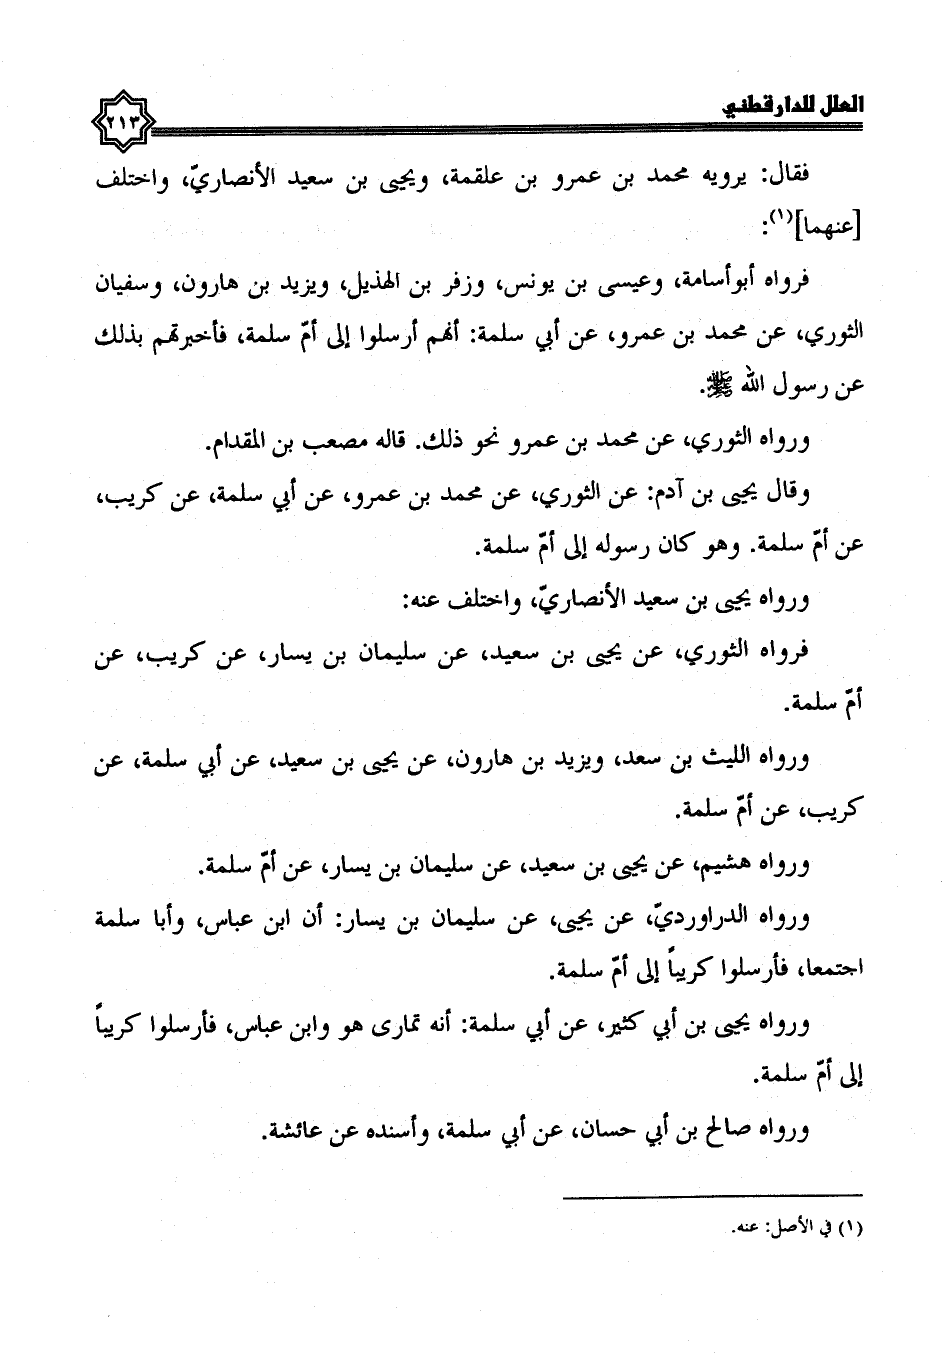 العلل للدارقطني
٢١٣
فقال: يرويه محمد بن عمرو بن علقمة، ويحيى بن سعيد الأنصاريّ، واختلف
[عنهما](١):
فرواه أبوأسامة، وعيسى بن يونس، وزفر بن الهذيل، ويزيد بن هارون، وسفيان
الثوري، عن محمد بن عمرو، عن أبي سلمة: أنهم أرسلوا إلى أمّ سلمة، فأخبرتهم بذلك
عن رسول الله ﷺ.
ورواه الثوري، عن محمد بن عمرو نحو ذلك. قاله مصعب بن المقدام.
وقال يحيى بن آدم: عن الثوري، عن محمد بن عمرو، عن أبي سلمة، عن كريب،
عن أمّ سلمة. وهو كان رسوله إلى أمّ سلمة.
ورواه يحيى بن سعيد الأنصاريّ، واختلف عنه:
فرواه الثوري، عن يحيى بن سعيد، عن سليمان بن يسار، عن كريب، عن
أمّ سلمة.
ورواه الليث بن سعد، ويزيد بن هارون، عن يحيى بن سعيد، عن أبي سلمة، عن
كريب، عن أمّ سلمة.
ورواه هشيم، عن يحيى بن سعيد، عن سليمان بن يسار، عن أمّ سلمة.
ورواه الدراورديّ، عن يحيى، عن سليمان بن يسار: أن ابن عباس، وأبا سلمة
اجتمعا، فأرسلوا كريباً إلى أمّ سلمة.
ورواه يحيى بن أبي كثير، عن أبي سلمة: أنه تمارى هو وابن عباس، فأرسلوا كريباً
إلى أمّ سلمة.
ورواه صالح بن أبي حسان، عن أبي سلمة، وأسنده عن عائشة.
(١) في الأصل: عنه.